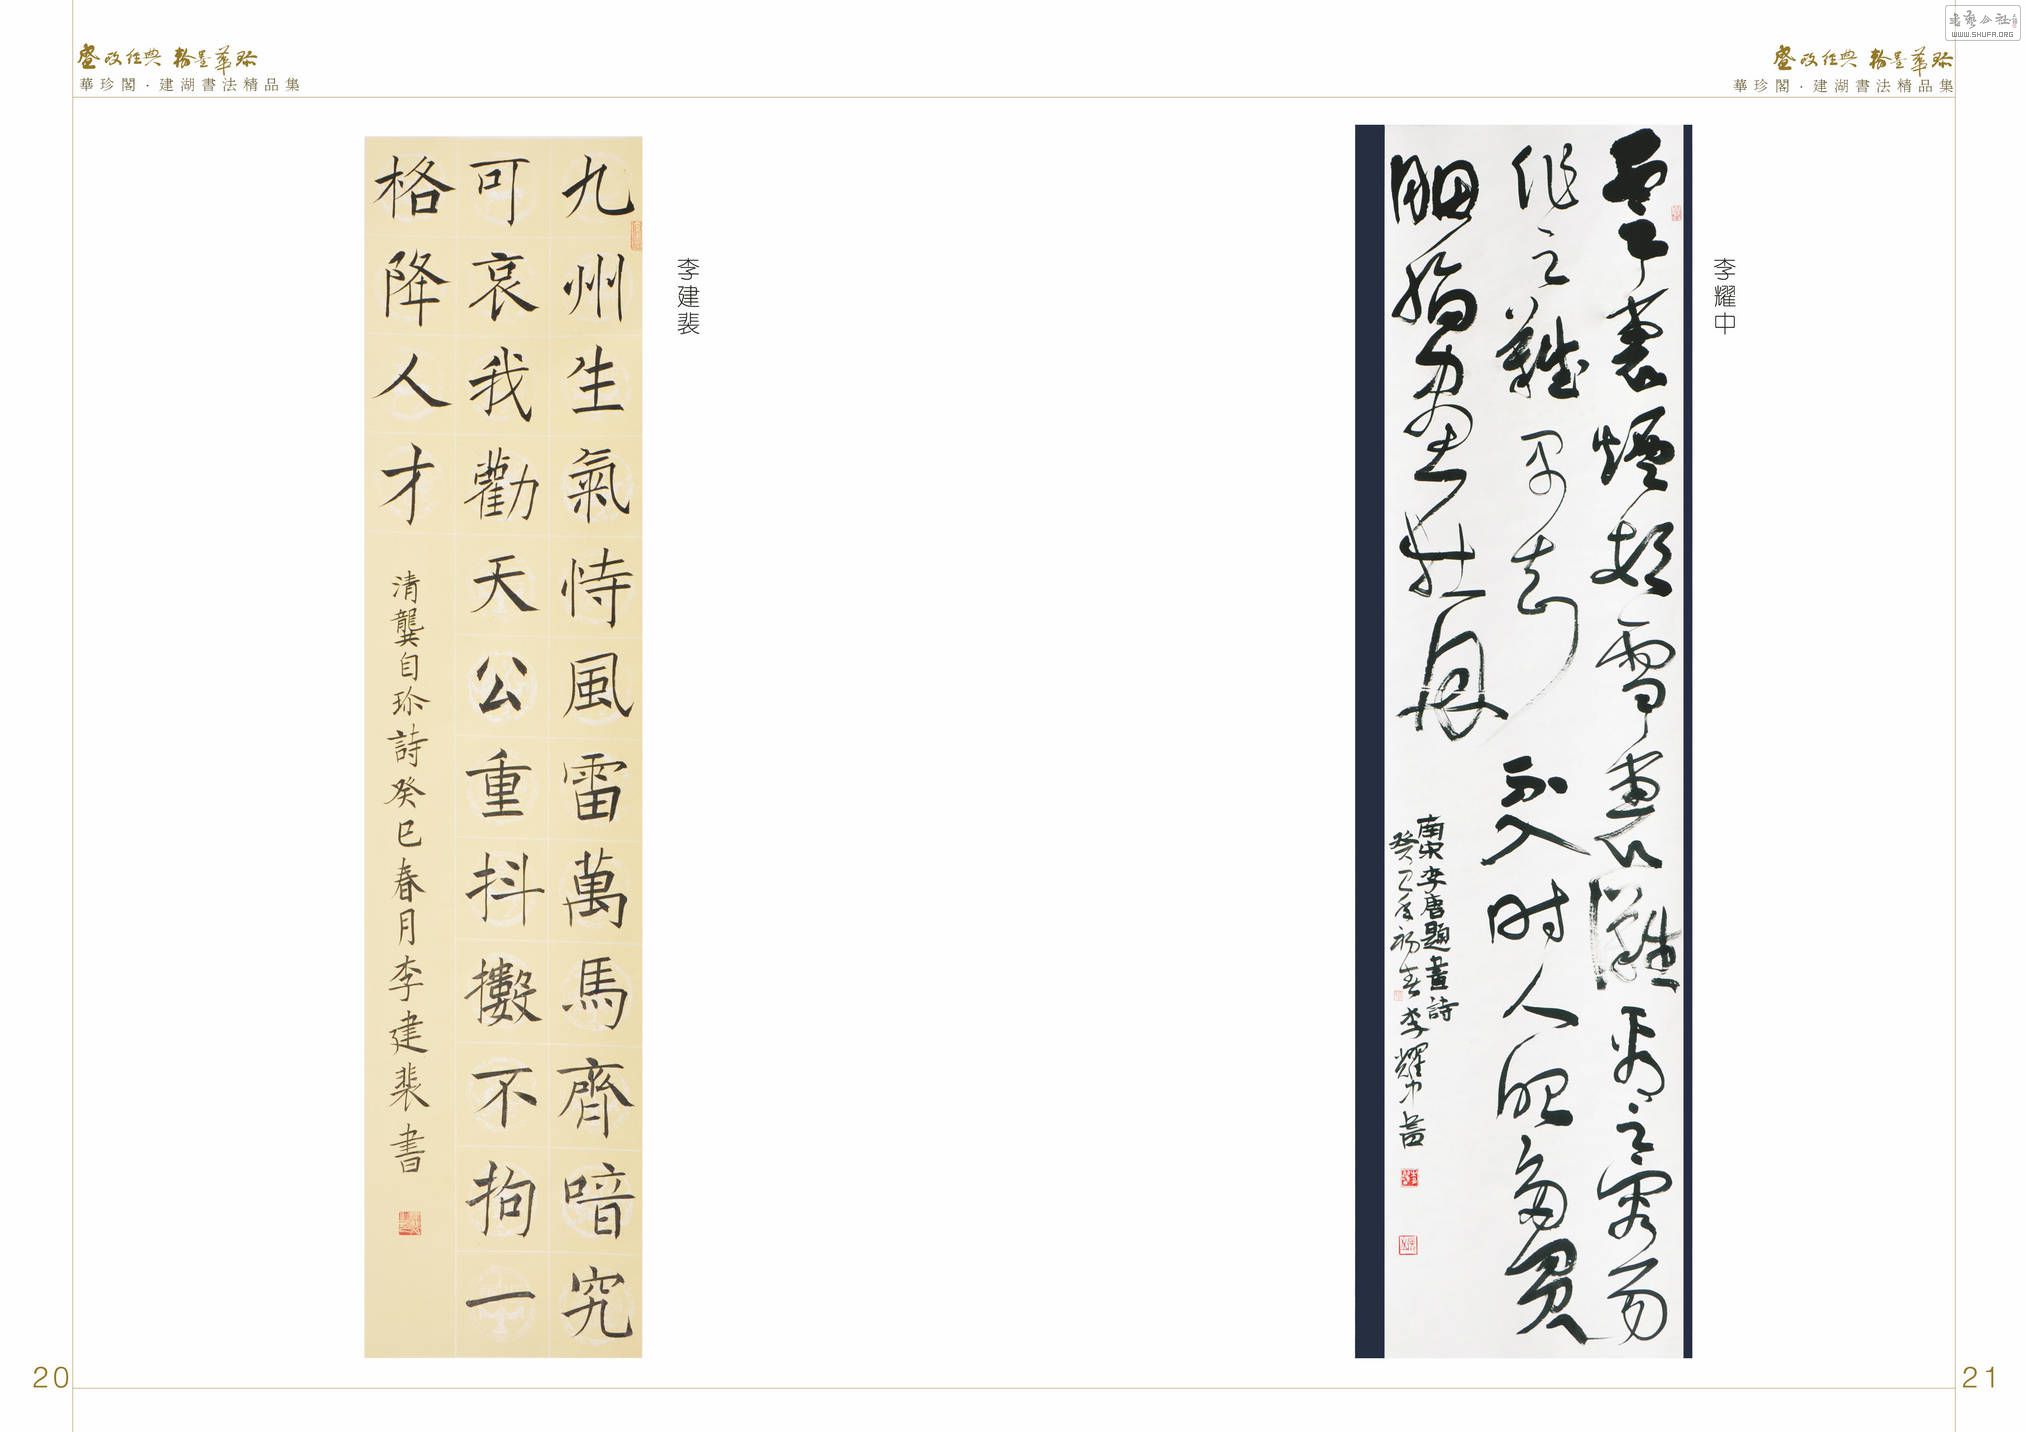 華珍閣·建湖書法精品集
李建裴
九州生氣恃風雷萬馬齊喑究
可哀我勸天公重抖擻不拘一
格降人才
清龔自珍詩癸巳春月李建裴書
20
WWW.SHUFA.ORG
華珍閣·建湖書法精品集
李耀中
雲裏煙村雪裏灘看之容易
作之難早知不入时人眼多買
胭脂畫牡丹
南宋李唐題畫詩
癸巳年初春李耀中
21